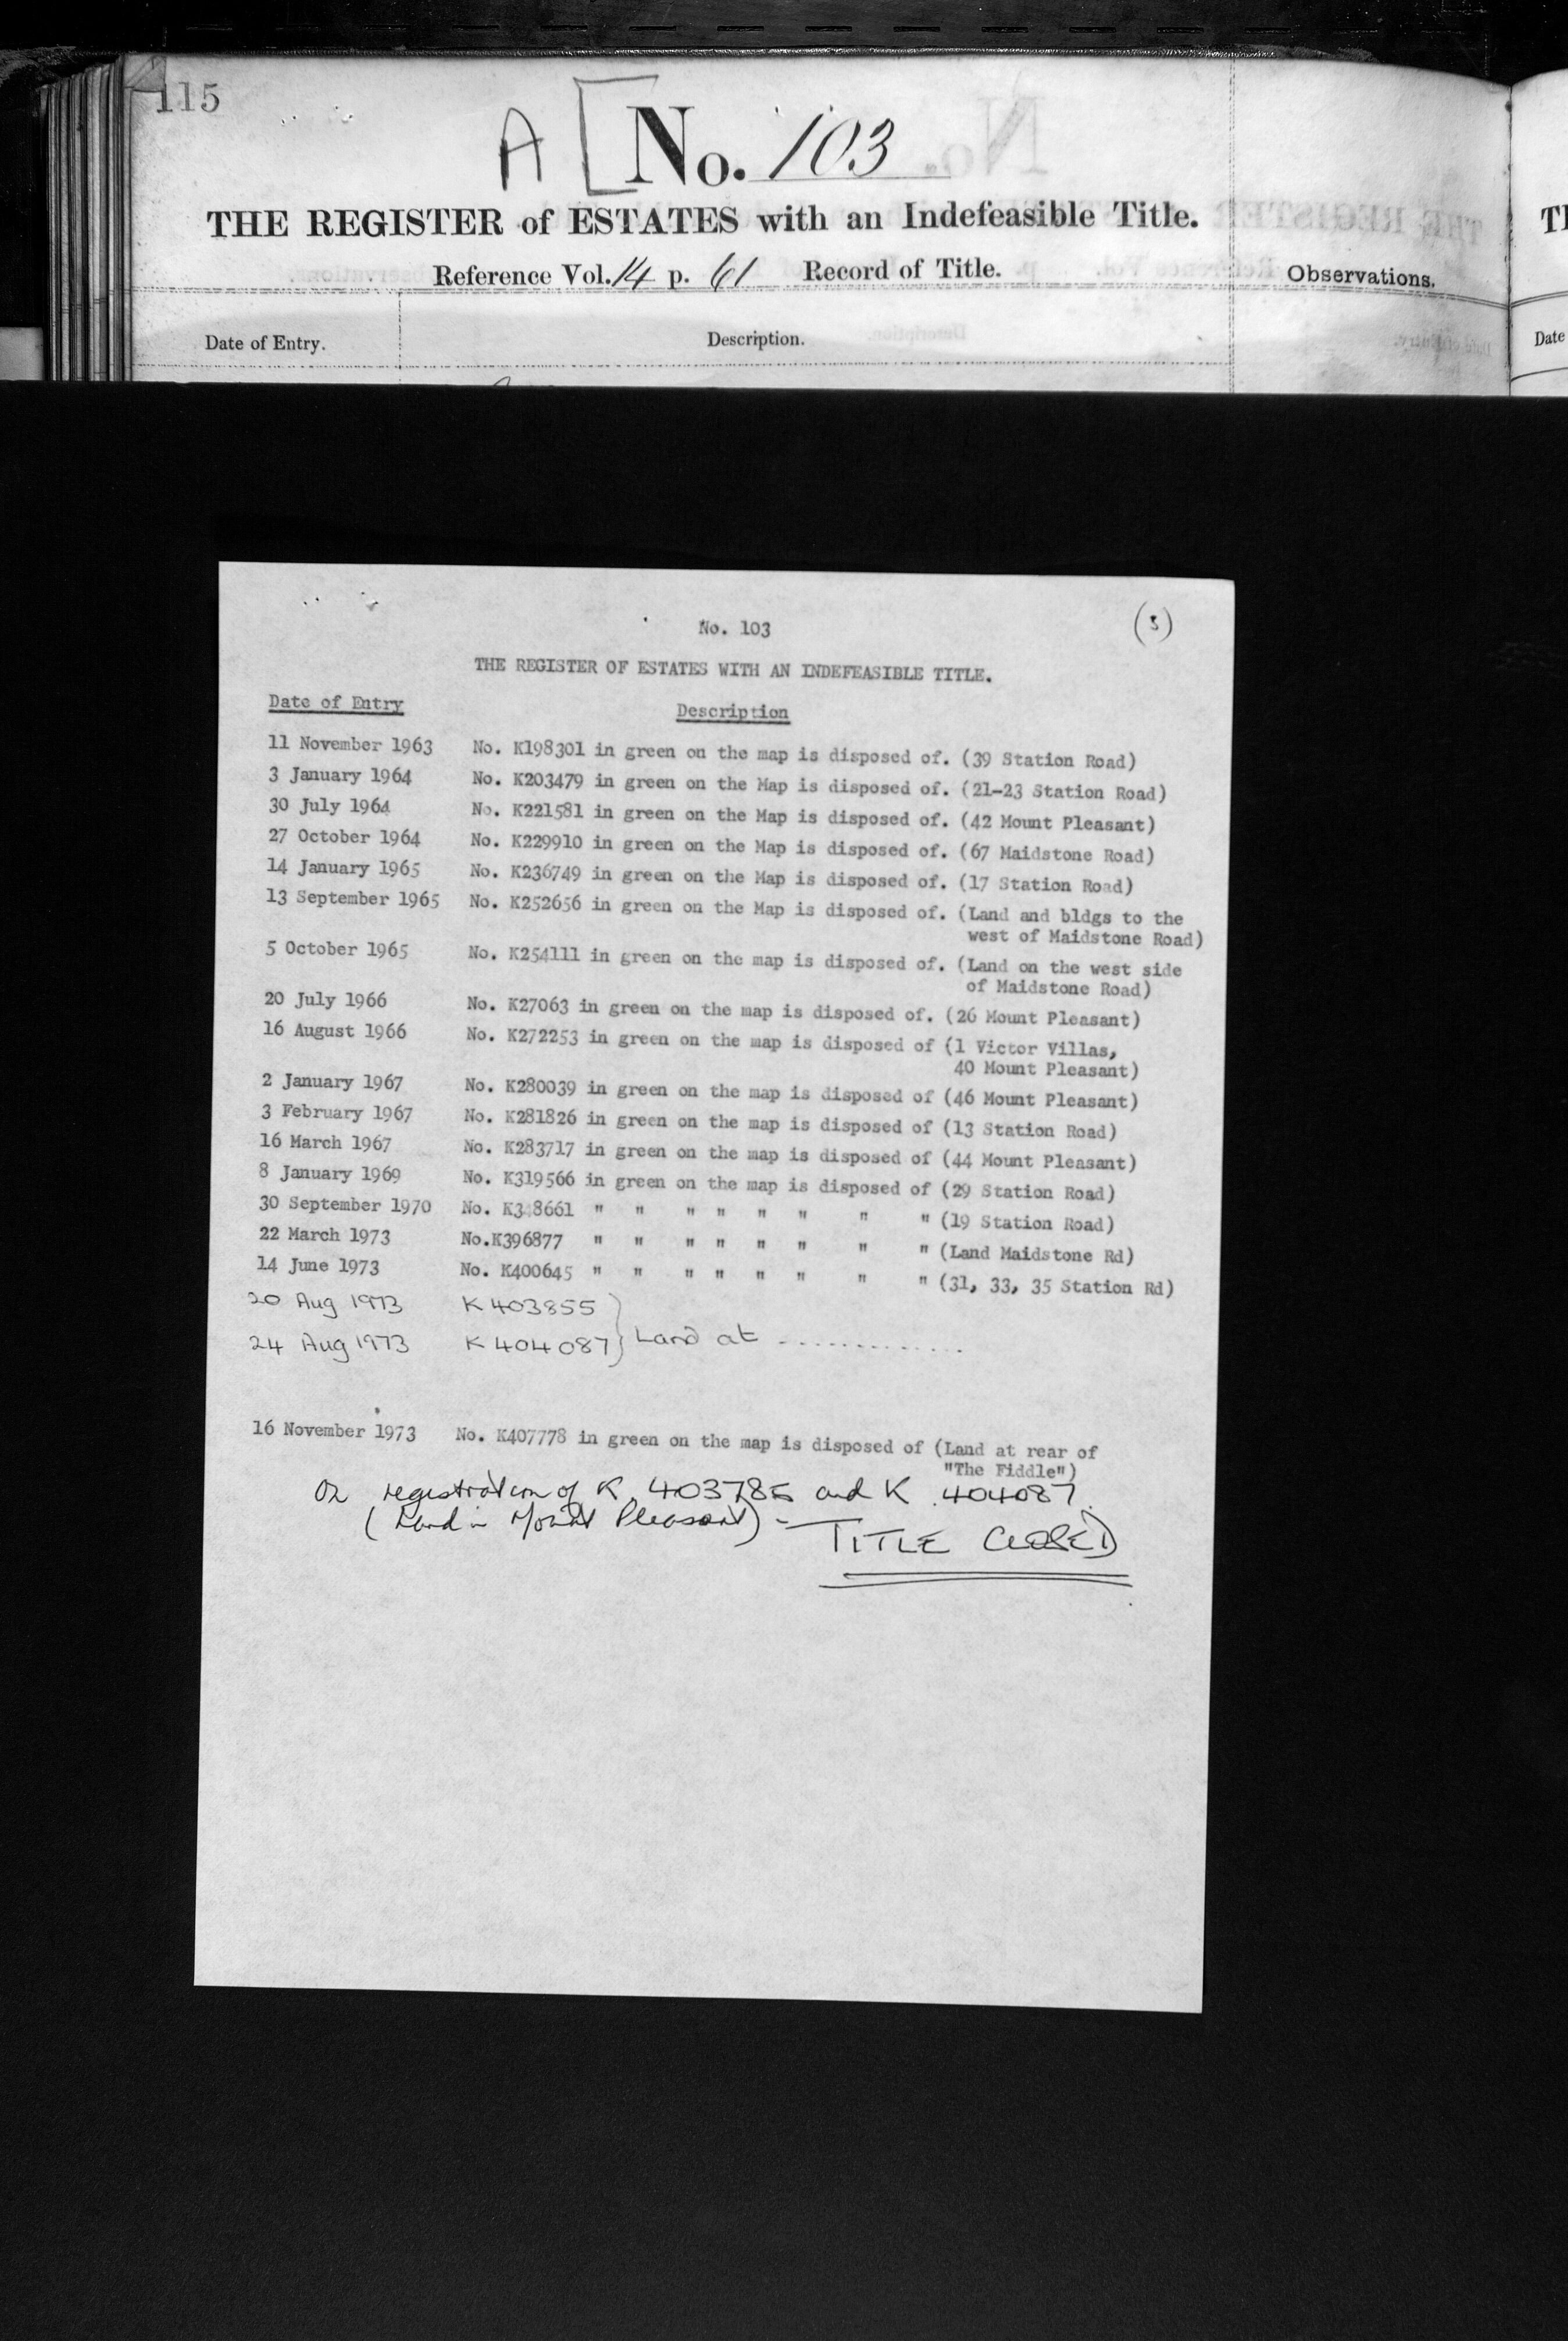 115
A [No. 103
THE REGISTER of ESTATES with an Indefeasible Title.
Reference Vol. 14 p. 61 Record of Title.
Observations.
Date of Entry.
Description.
Date
No. 103
(3)
THE REGISTER OF ESTATES WITH AN INDEFEASIBLE TITLE.
Date of Entry Description
11 November 1963 No. K198301 in green on the map is disposed of. (39 Station Road)
3 January 1964 No. K203479 in green on the Map is disposed of. (21-23 Station Road)
30 July 1964 No. K221581 in green on the Map is disposed of. (42 Mount Pleasant)
27 October 1964 No. K229910 in green on the Map is disposed of. (67 Maidstone Road)
14 January 1965 No. K236749 in green on the Map is disposed of. (17 Station Road)
13 September 1965 No. K252656 in green on the Map is disposed of. (Land and bldgs to the
west of Maidstone Road)
5 October 1965 No. K254111 in green on the map is disposed of. (Land on the west side
of Maidstone Road)
20 July 1966 No. K27063 in green on the map is disposed of. (26 Mount Pleasant)
16 August 1966 No. K272253 in green on the map is disposed of (1 Victor Villas,
40 Mount Pleasant)
2 January 1967 No. K280039 in green on the map is disposed of (46 Mount Pleasant)
3 February 1967 No. K281826 in green on the map is disposed of (13 Station Road)
16 March 1967 No. K283717 in green on the map is disposed of (44 Mount Pleasant)
8 January 1969 No. K319566 in green on the map is disposed of (29 Station Road)
30 September 1970 No. " " " " " " " " (19 Station Road)
22 March 1973 No.K396877 " " " " " " " " (Land Maidstone Rd)
14 June 1973 No. K400645 " " " " " " " " (31, 33, 35 Station Rd)
20 Aug 1973 K 403855 }
24 Aug 1973 K 404087 } Land at ..............
16 November 1973 No. K407778 in green on the map is disposed of (Land at rear of
"The Fiddle")
On registration of K 403785 and K 404087.
(Land in Mount Pleasant) -
TITLE CLOSED